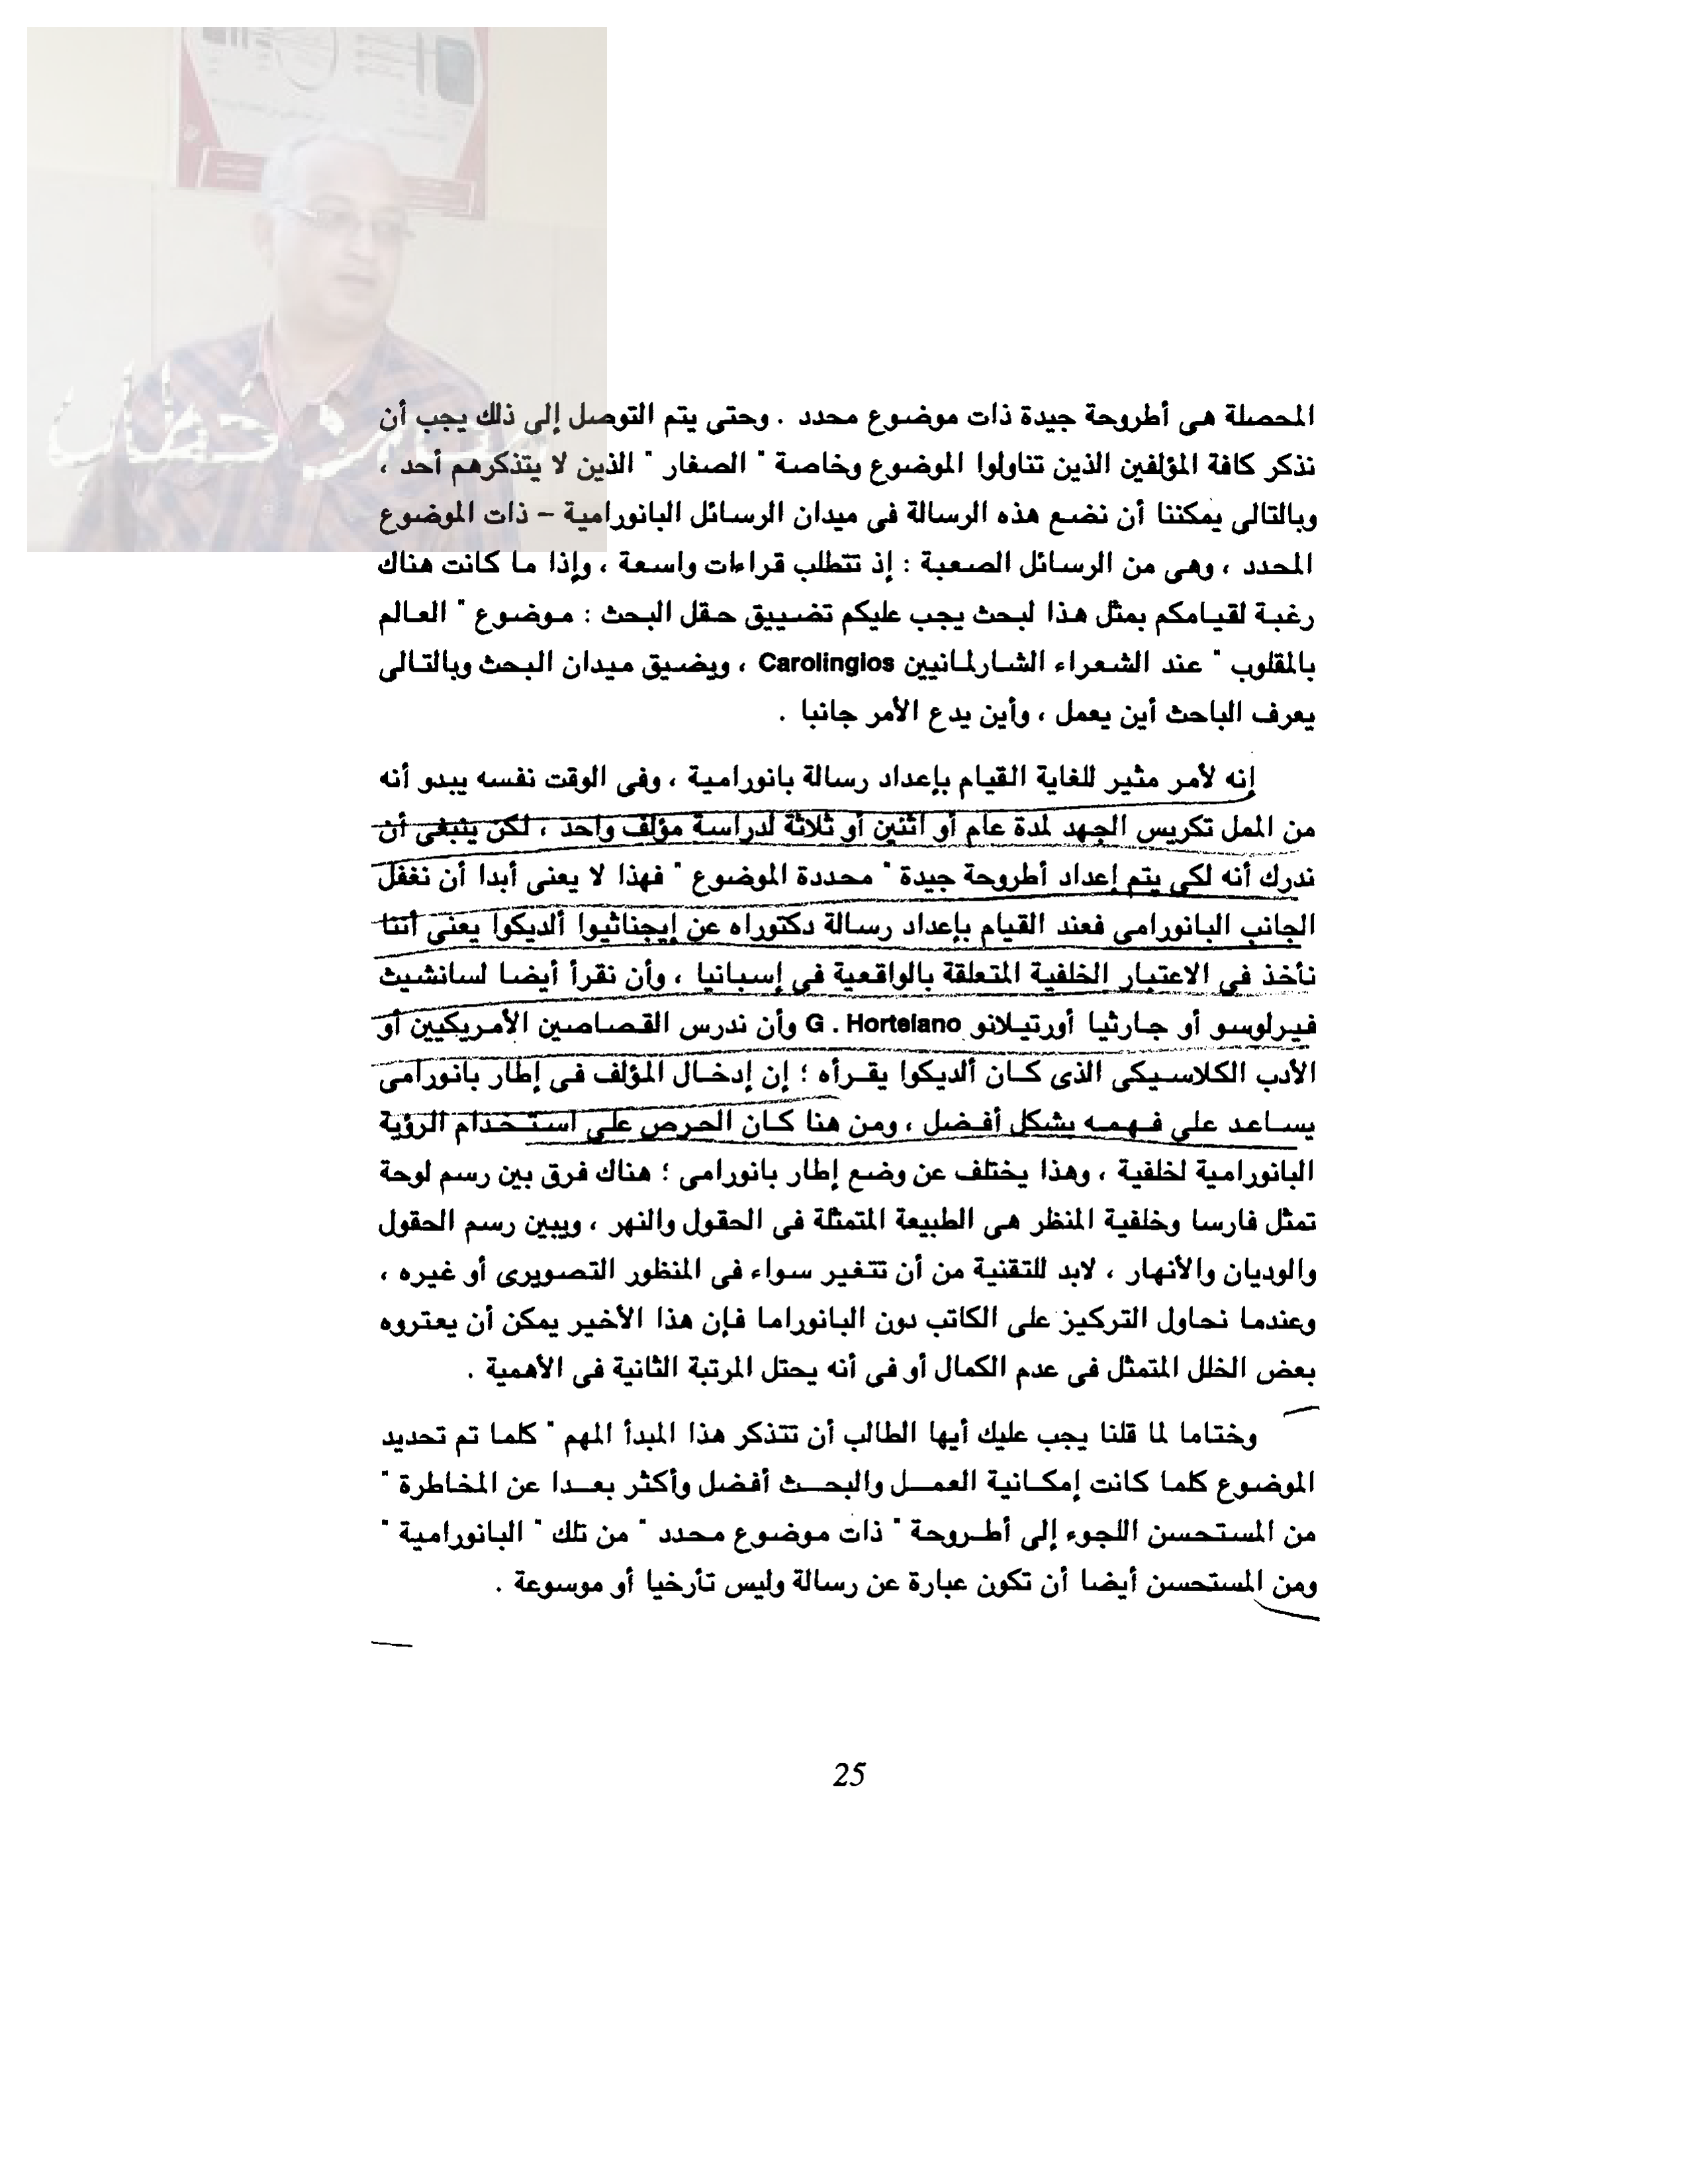 المحصلة هى أطروحة جيدة ذات موضوع محدد . وحتى يتم التوصل إلى ذلك يجب أن
نذكر كافة المؤلفين الذين تناولوا الموضوع وخاصة " الصغار " الذين لا يتذكرهم أحد ،
وبالتالى يمكننا أن نضع هذه الرسالة فى ميدان الرسائل البانورامية – ذات الموضوع
المحدد ، وهى من الرسائل الصعبة : إذ تتطلب قراءات واسعة ، وإذا ما كانت هناك
رغبة لقيامكم بمثل هذا لبحث يجب عليكم تضييق حقل البحث : موضوع " العالم
بالمقلوب " عند الشعراء الشارلمانيين Carolingios ، ويضيق ميدان البحث وبالتالى
يعرف الباحث أين يعمل ، وأين يدع الأمر جانبا .
إنه لأمر مثير للغاية القيام بإعداد رسالة بانورامية ، وفى الوقت نفسه يبدو أنه
من الممل تكريس الجهد لمدة عام أو اثنين أو ثلاثة لدراسة مؤلف واحد ، لكن ينبغى أن
ندرك أنه لكى يتم إعداد أطروحة جيدة " محددة الموضوع " فهذا لا يعنى أبدا أن نغفل
الجانب البانورامى فعند القيام بإعداد رسالة دكتوراه عن إيجناثيوا ألديكوا يعنى أننا
نأخذ فى الاعتبار الخلفية المتعلقة بالواقعية فى إسبانيا ، وأن نقرأ أيضا لسانشيث
فيرلوسو أو جارثيا أورتيلانو G . Hortelano وأن ندرس القصاصين الأمريكيين أو
الأدب الكلاسيكى الذى كان ألديكوا يقرأه ؛ إن إدخال المؤلف فى إطار بانورامى
يساعد على فهمه بشكل أفضل ، ومن هنا كان الحرص على استخدام الرؤية
البانورامية لخلفية ، وهذا يختلف عن وضع إطار بانورامى ؛ هناك فرق بين رسم لوحة
تمثل فارسا وخلفية المنظر هى الطبيعة المتمثلة فى الحقول والنهر ، ويبين رسم الحقول
والوديان والأنهار ، لابد للتقنية من أن تتغير سواء فى المنظور التصويرى أو غيره ،
وعندما نحاول التركيز على الكاتب دون البانوراما فإن هذا الأخير يمكن أن يعتروه
بعض الخلل المتمثل فى عدم الكمال أو فى أنه يحتل المرتبة الثانية فى الأهمية .
وختاما لما قلنا يجب عليك أيها الطالب أن تتذكر هذا المبدأ المهم " كلما تم تحديد
الموضوع كلما كانت إمكانية العمل والبحث أفضل وأكثر بعدا عن المخاطرة "
من المستحسن اللجوء إلى أطروحة " ذات موضوع محدد " من تلك " البانورامية "
ومن المستحسن أيضا أن تكون عبارة عن رسالة وليس تأرخيا أو موسوعة .
25